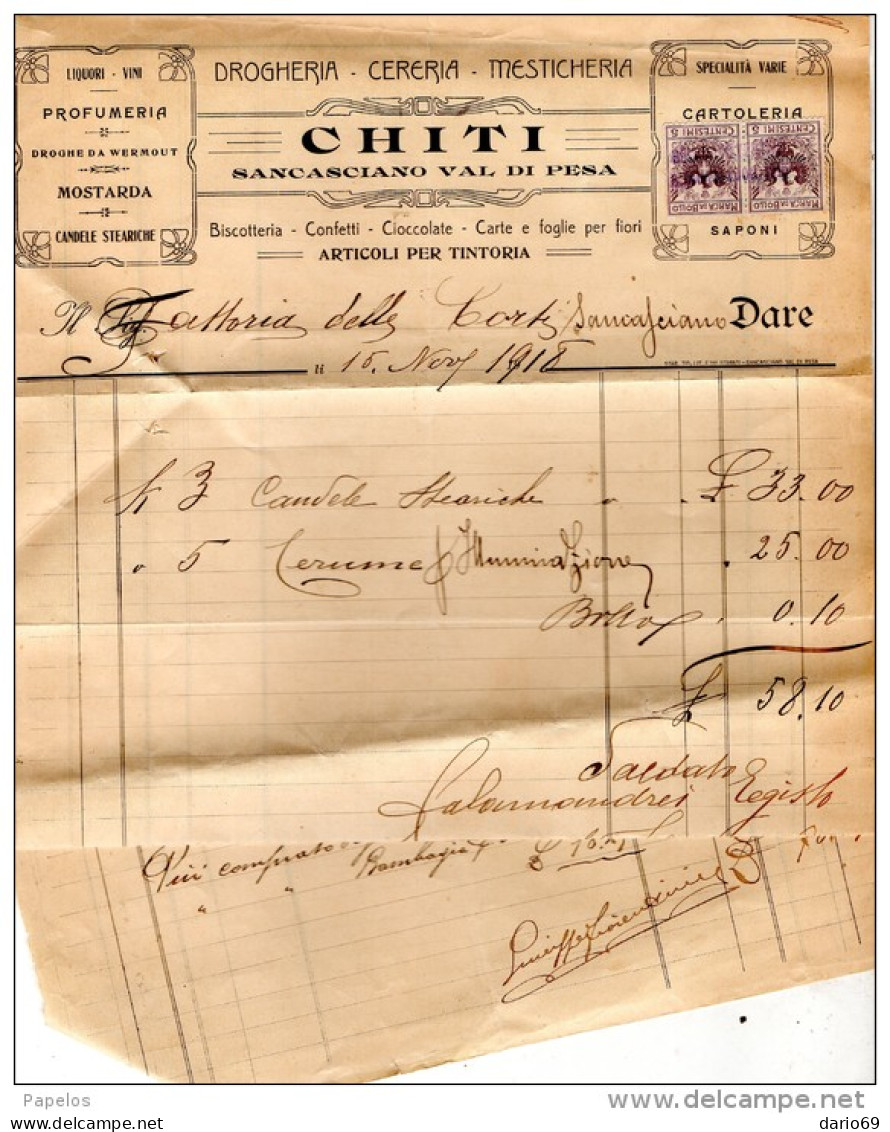 DROGHERIA - CERERIA - MESTICHERIA
CHITI
SANCASCIANO VAL DI PESA
Biscotteria - Confetti - Cioccolate - Carte e foglie per fiori
ARTICOLI PER TINTORIA
LIQUORI - VINI
PROFUMERIA
DROGHE DA WERMOUT
MOSTARDA
CANDELE STEARICHE
SPECIALITÀ VARIE
CARTOLERIA
CENTESIMI 5 CENTESIMI 5
MARCA DA BOLLO MARCA DA BOLLO
SAPONI
Il Sig. Fattoria delle Corti Sancasciano Dare
li 16. Nov 1918
K 3 Candele Steariche " " £ 33.00
" 5 Cerume p Illuminazione " 25.00
Bollo " 0.10
£ 58.10
Saldato
Calamandrei Egisto
Più comprato
" " Bambagia p
Papelos
delcampe.net
dario69